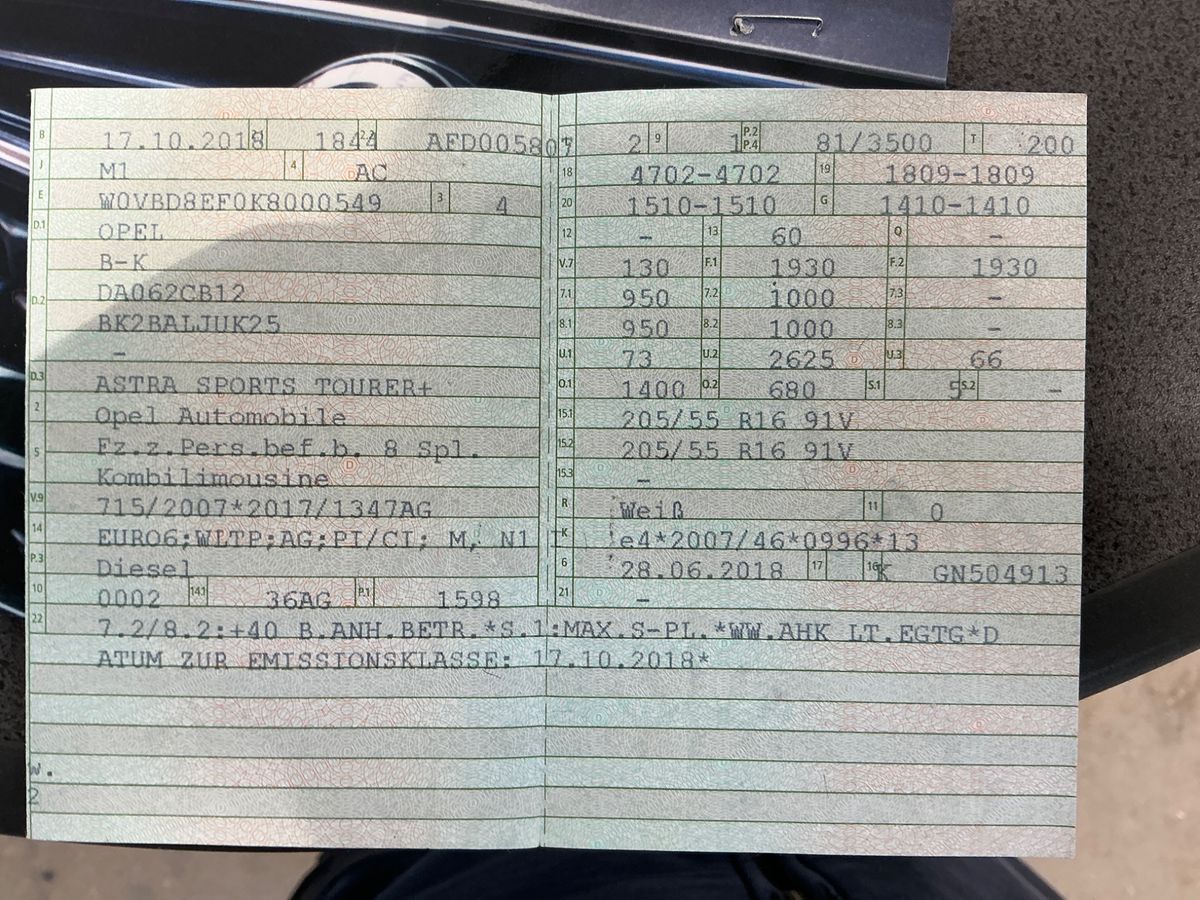 B 17.10.2018 2.1 1844 2.2 AFD005807
J M1 4 AC
E W0VBD8EF0K8000549 3 4
D.1 OPEL
B-K
D.2 DA062CB12
BK2BALJUK25
–
D.3 ASTRA SPORTS TOURER+
2 Opel Automobile
5 Fz.z.Pers.bef.b. 8 Spl.
Kombilimousine
V.9 715/2007*2017/1347AG
14 EURO6;WLTP;AG;PI/CI; M, N1 I
P.3 Diesel
10 0002 14.1 36AG P.1 1598
2 9 1 P.2 P.4 81/3500 T 200
18 4702-4702 19 1809-1809
20 1510-1510 G 1410-1410
12 – 13 60 Q –
V.7 130 F.1 1930 F.2 1930
7.1 950 7.2 1000 7.3 –
8.1 950 8.2 1000 8.3 –
U.1 73 U.2 2625 U.3 66
O.1 1400 O.2 680 S.1 5 S.2 –
15.1 205/55 R16 91V
15.2 205/55 R16 91V
15.3 –
R Weiß 11 0
K e4*2007/46*0996*13
6 28.06.2018 17 K 16 GN504913
21 –
22 7.2/8.2:+40 B.ANH.BETR.*S.1:MAX.S-PL.*WW.AHK LT.EGTG*D
ATUM ZUR EMISSIONSKLASSE: 17.10.2018*
w.
2